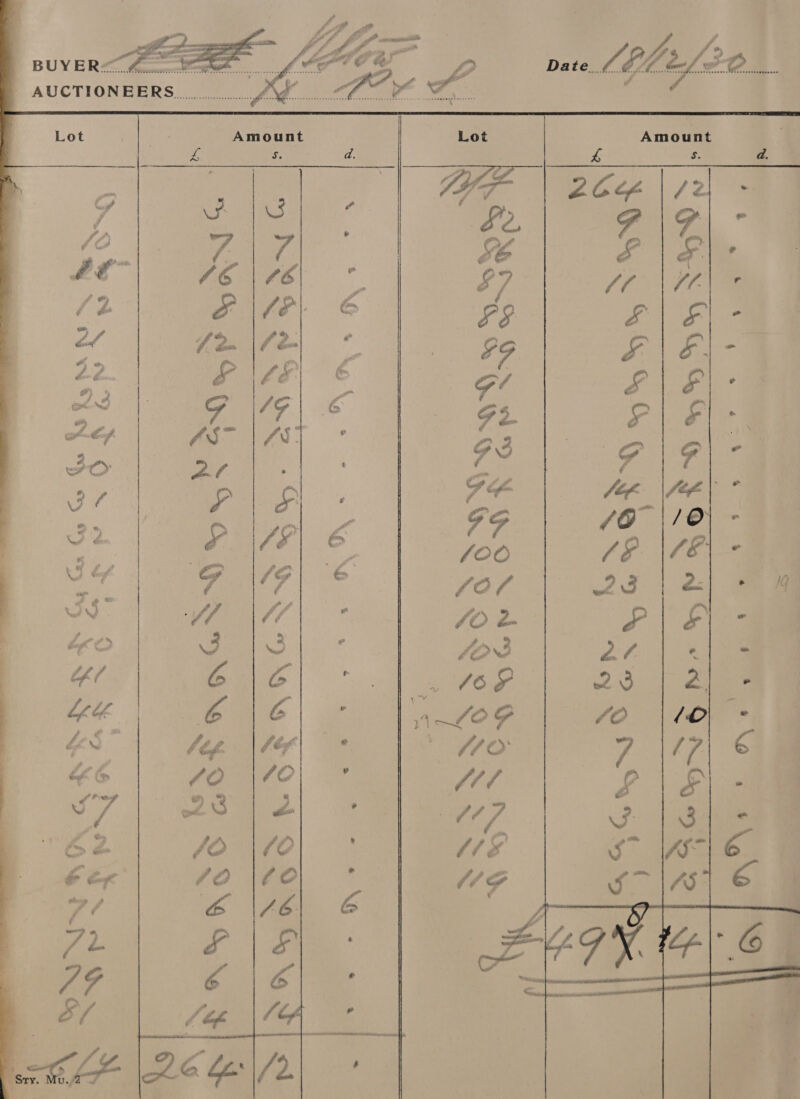 BUYER
Date 18/2/30
AUCTIONEERS
Lot Amount
£ s. d.
9 3 3 -
10 7 7 -
16 16 -
12 8 18 6
21 12 12 -
22 8 18 6
23 9 19 6
24 15 15 -
30 21 - -
31 8 8 -
32 8 18 6
34 9 19 6
35 11 11 -
40 3 3 -
41 6 6 -
44 6 6 -
45 14 14 -
46 10 10 -
57 23 2 -
62 10 10 -
64 10 10 -
71 6 16 6
72 8 8 -
79 6 6 -
81 14 14 -
264 12 -
Sty. Mu./2
Lot Amount
£ s. d.
264 12 -
82 9 9 -
86 8 8 -
87 11 11 -
88 8 8 -
89 8 8 -
91 8 8 -
92 8 8 -
93 9 9 -
94 14 14 -
99 10 10 -
100 18 18 -
101 23 2 -
102 8 8 -
103 21 - -
108 23 2 -
109 10 10 -
110 7 17 6
111 8 8 -
117 3 3 -
118 5 15 6
119 5 15 6
14 - 6